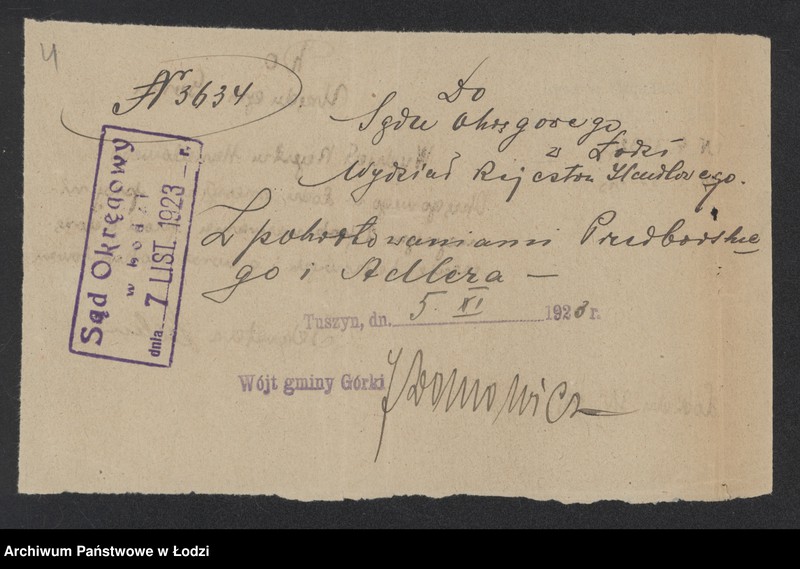 4
Nr 3634
Do
Sądu Okręgowego
w Łodzi
Wydział Rejestru Handlowego.
Z pokwitowaniami Predborskie
go i Adlera —
Tuszyn, dn. 5. XI 1923 r.
Wójt gminy Górki
Sąd Okręgowy
w Łodzi
dnia 7 LIST. 1923 r.
Archiwum Państwowe w Łodzi